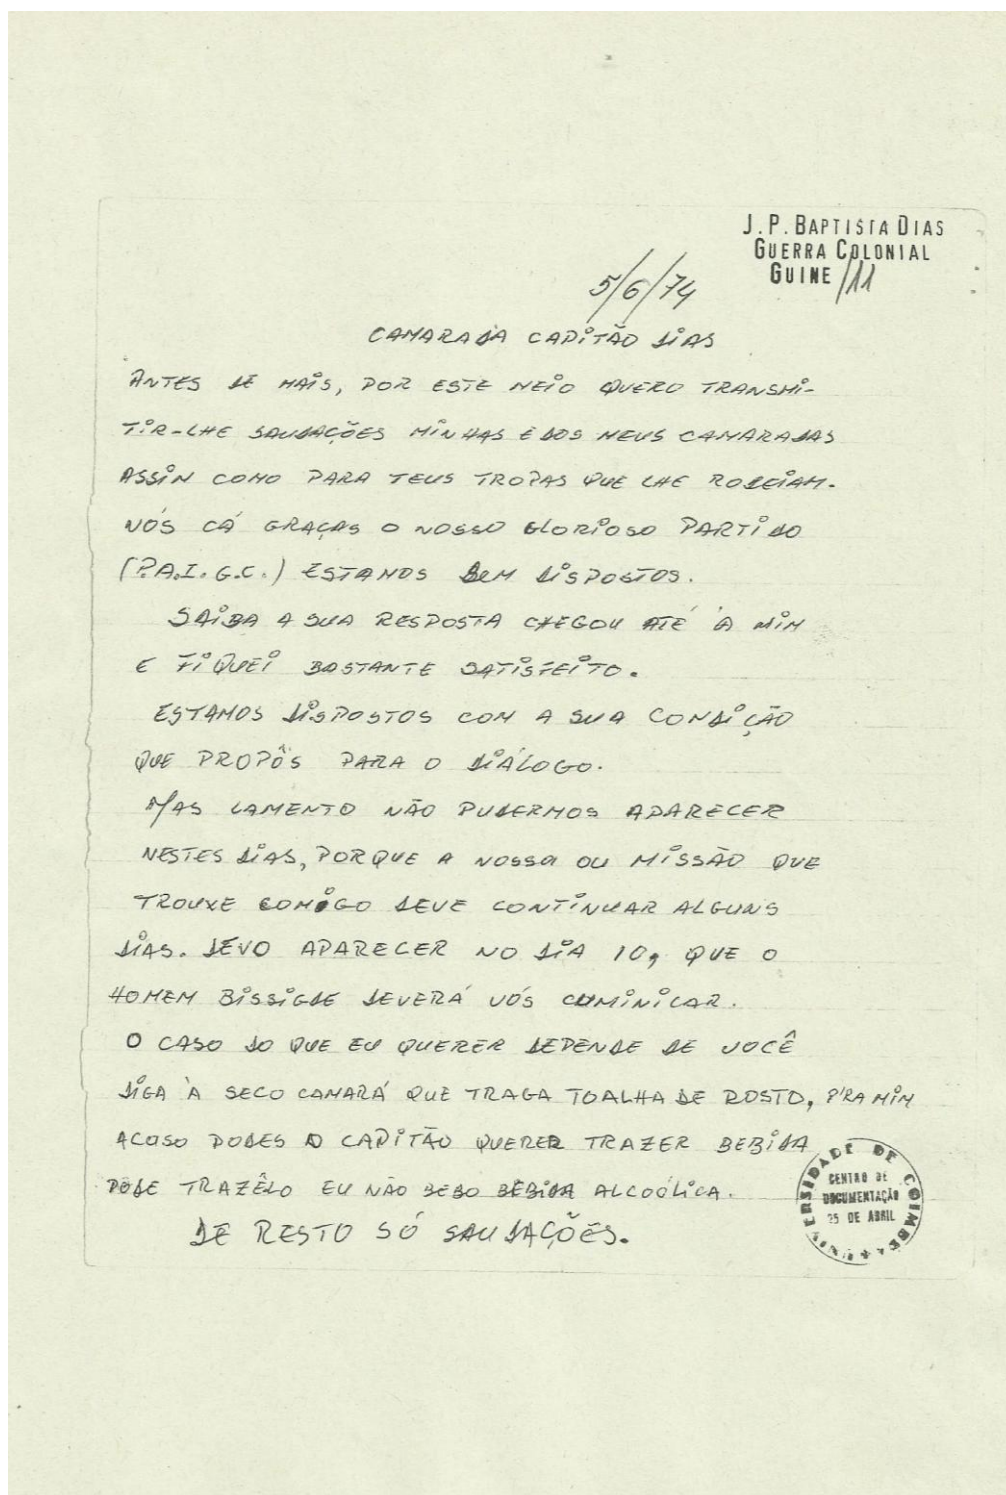 J.P. BAPTISTA DIAS
GUERRA COLONIAL
GUINE /11
5/6/74
CAMARADA CAPITÃO DIAS
ANTES DE MAIS, POR ESTE MEIO QUERO TRANSMI-
TIR-LHE SAUDAÇÕES MINHAS E DOS MEUS CAMARADAS
ASSIN COMO PARA TEUS TROPAS QUE LHE RODEIAM.
NÓS CÁ GRAÇAS O NOSSO GLORIOSO PARTIDO
(P.A.I.G.C.) ESTAMOS BEM DISPOSTOS.
SAIBA A SUA RESPOSTA CHEGOU ATÉ À MIM
E FIQUEI BASTANTE SATISFEITO.
ESTAMOS DISPOSTOS COM A SUA CONDIÇÃO
QUE PROPÔS PARA O DIÁLOGO.
MAS LAMENTO NÃO PUDERMOS APARECER
NESTES DIAS, PORQUE A NOSSA OU MISSÃO QUE
TROUXE COMIGO DEVE CONTINUAR ALGUNS
DIAS. DEVO APARECER NO DIA 10, QUE O
HOMEM BISSIGDE DEVERÁ VÓS CUMINICAR.
O CASO DO QUE EU QUERER DEPENDE DE VOCÊ
DIGA À SECO CAMARÁ QUE TRAGA TOALHA DE ROSTO, P'RA MIM
ACOSO PODES O CAPITÃO QUERER TRAZER BEBIDA
PODE TRAZÊLO EU NÃO BEBO BEBIDA ALCOÓLICA.
DE RESTO SÓ SAUDAÇÕES.
UNIVERSIDADE DE COIMBRA
CENTRO DE
DOCUMENTAÇÃO
25 DE ABRIL